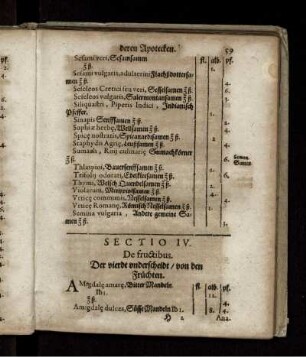 deren Apotecken. 59
fl. alb. pf.
Sesami veri, Sesamsamen
ʒß.
Sesami vulgaris, adulterini Flachßdottersa-
men ʒß.
Seseleos Cretici seu veri, Sesselsamen ʒß.
Seseleos vulgaris, Salermontansamen ʒß.
Siliquastri, Piperis Indici, Indianisch
Pfeffer.
Sinapis Senffsamen ʒß.
Sophiæ herbę, Welsamen ʒß.
Spicę nostratis, Spicanardsamen ʒß.
Staphidis Agrię, Leußsamen ʒß.
Sumach, Rois culinarię
ʒß.
Thlaspios, Baurensenffsamen ʒß.
Trifolij odorati,
Thymi, Welsch Quendelsamen ʒß.
Violarum, Mertzviolsamen ʒß.
Vrticę communis, Nesselsamen ʒß.
Vrticę Romanę, Römisch Nesselsamen ʒß.
Semina vulgaria, Andere gemeine Sa-
men ʒß.
SECTIO IV.
De fructibus.
Der vierdt vnderscheidt / von den
Früchten.
fl. alb. pf.
AMygdalę amarę, Bitter Mandeln
lb1.
ʒß.
Amygdalę dulces, Süsse Mandeln lb1.
H 2 Ana-